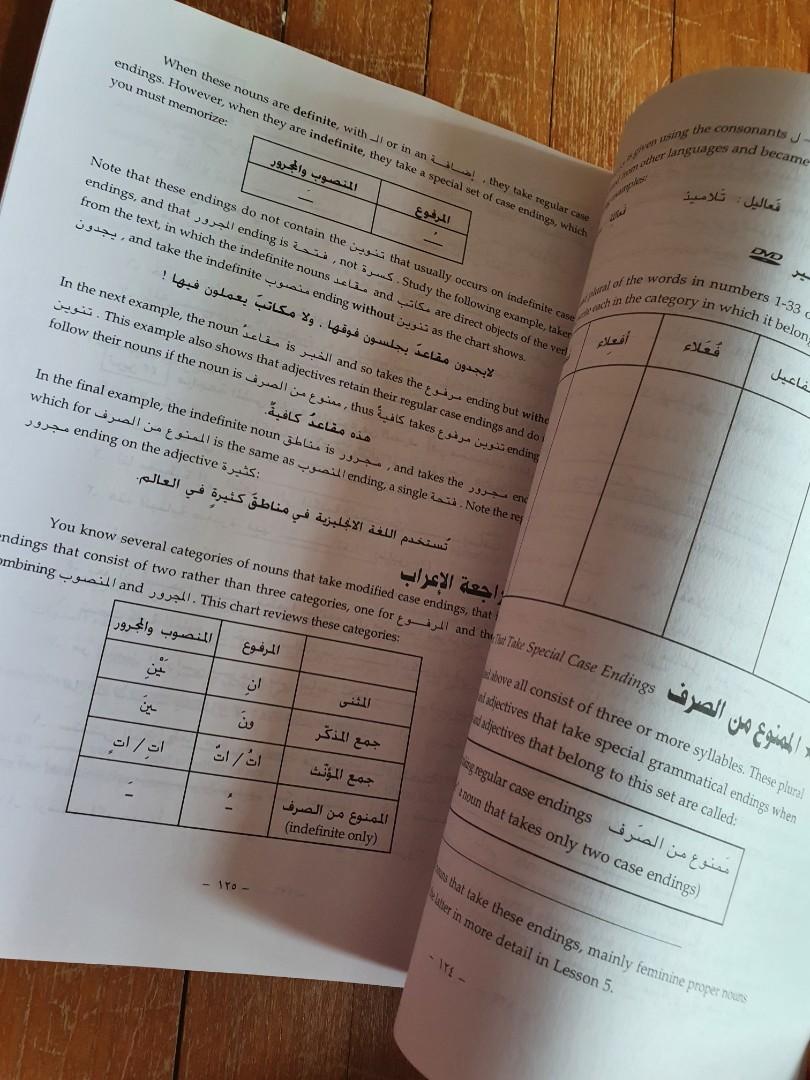 is given using the consonants
from other languages and became
examples:
فَعاليل: تَلاميذ
DVD
plural of the words in numbers 1-33
each in the category in which it belong
فُعَلاء
أفعِلاء
That Take Special Case Endings الممنوع من الصرف
above all consist of three or more syllables. These plural
adjectives that take special grammatical endings when
adjectives that belong to this set are called:
regular case endings مَمنوع من الصَرف
a noun that takes only two case endings)
that take these endings, mainly feminine proper nouns
latter in more detail in Lesson 5.
- ١٢٤ -
When these nouns are definite, with الـ or in an إضـافـة , they take regular case
endings. However, when they are indefinite, they take a special set of case endings, which
you must memorize:
المرفوع المنصوب والمجرور
ـُ ـَ
Note that these endings do not contain the تنوين that usually occurs on indefinite case
endings, and that المجرور ending is فتحة , not كسرة . Study the following example, taken
from the text, in which the indefinite nouns مقاعد and مكاتب are direct objects of the verb
يجدون , and take the indefinite منصوب ending without تنوين as the chart shows.
لايجدون مقاعدَ يجلسون فوقها . ولا مكاتبَ يعملون فيها !
In the next example, the noun مقاعدُ is الخبر and so takes the مرفوع ending but
تنوين . This example also shows that adjectives retain their regular case endings and do
follow their nouns if the noun is ممنوع من الصرف , thus كافيةٌ takes تنوين مرفوع ending
هذه مقاعدُ كافيةٌ.
In the final example, the indefinite noun مناطق is مجرور , and takes the مجرور
which for الممنوع من الصرف is the same as المنصوب ending, a single فتحة . Note the
مجرور ending on the adjective كثيرة:
تُستخدم اللغة الانجليزية في مناطقَ كثيرةٍ في العالم.
الإعراب
You know several categories of nouns that take modified case endings, that
endings that consist of two rather than three categories, one for المرفـــوع and the
combining المنصوب and المجرور . This chart reviews these categories:
المرفوع المنصوب والمجرور
المثنى انِ ـَيْنِ
جمع المذكّر ونَ ـينَ
جمع المؤنّث اتُ / اتٌ اتِ / اتٍ
الممنوع من الصرف ـُ ـَ
(indefinite only)
- ١٢٥ -